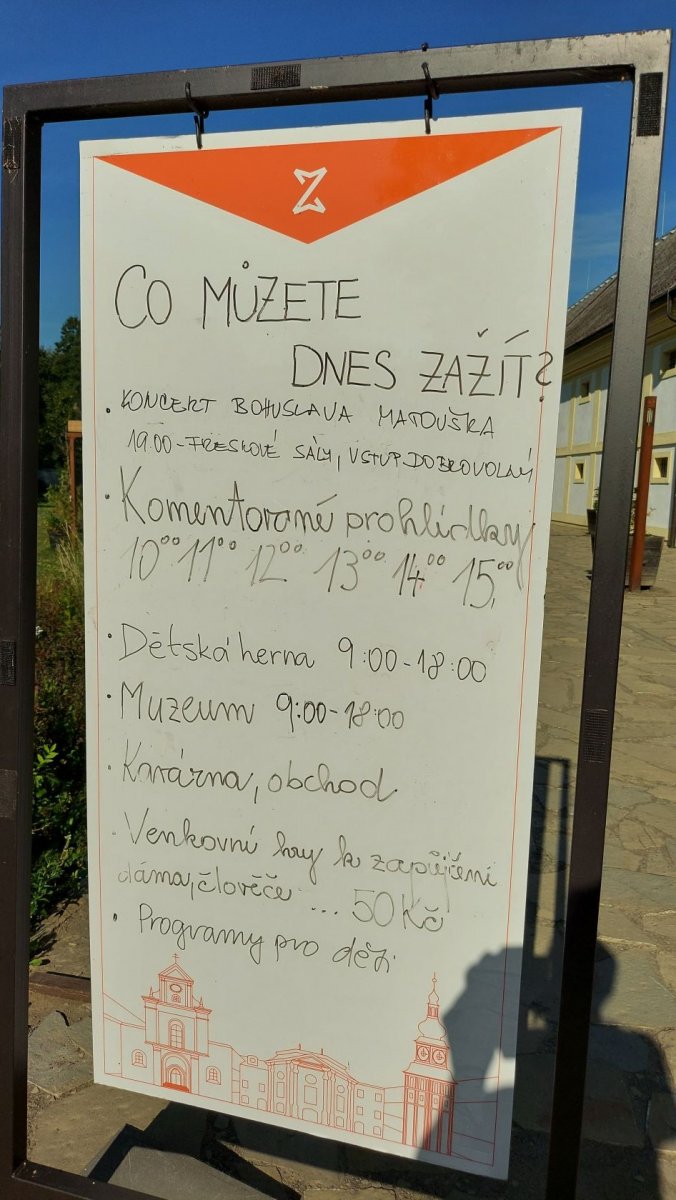 Z
CO MŮŽETE
DNES ZAŽÍT?
• KONCERT BOHUSLAVA MATOUŠKA
19.00 - FRESKOVÉ SÁLY, VSTUP DOBROVOLNÝ
• Komentované prohlídky
10⁰⁰ 11⁰⁰ 12⁰⁰ 13⁰⁰ 14⁰⁰ 15⁰⁰
• Dětská herna 9:00-18:00
• Muzeum 9:00-18:00
• Kavárna, obchod
• Venkovní hry k zapůjčení
dáma, člověče ... 50 Kč
• Programy pro děti